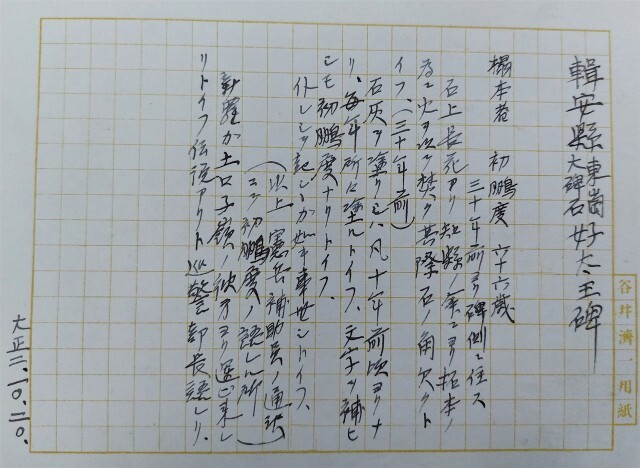 輯安縣東崗好太王碑
大碑石
搨本者 初鵬度 六十六歳
三十年前ヨリ碑側ニ住ス
石上長花アリ知縣ノ命ニヨリ拓本ノ
為ニ火ヲ以テ焚ク其際石ノ角欠クト
イフ、(三十年前)
石灰ヲ塗リシハ凡十年前頃ヨリナ
リ、毎年所々塗ルトイフ、文字ヲ補ヒ
シモ初鵬度ナリトイフ、
(以上 憲兵補助員ノ通訳
ニテ初鵬度ノ語レル所)
新羅カ土口子嶺ノ彼方ヨリ運ビ来レ
リトイフ伝説アリト 警部長語レリ、
大正二.一〇.二〇.
谷井濟一用紙